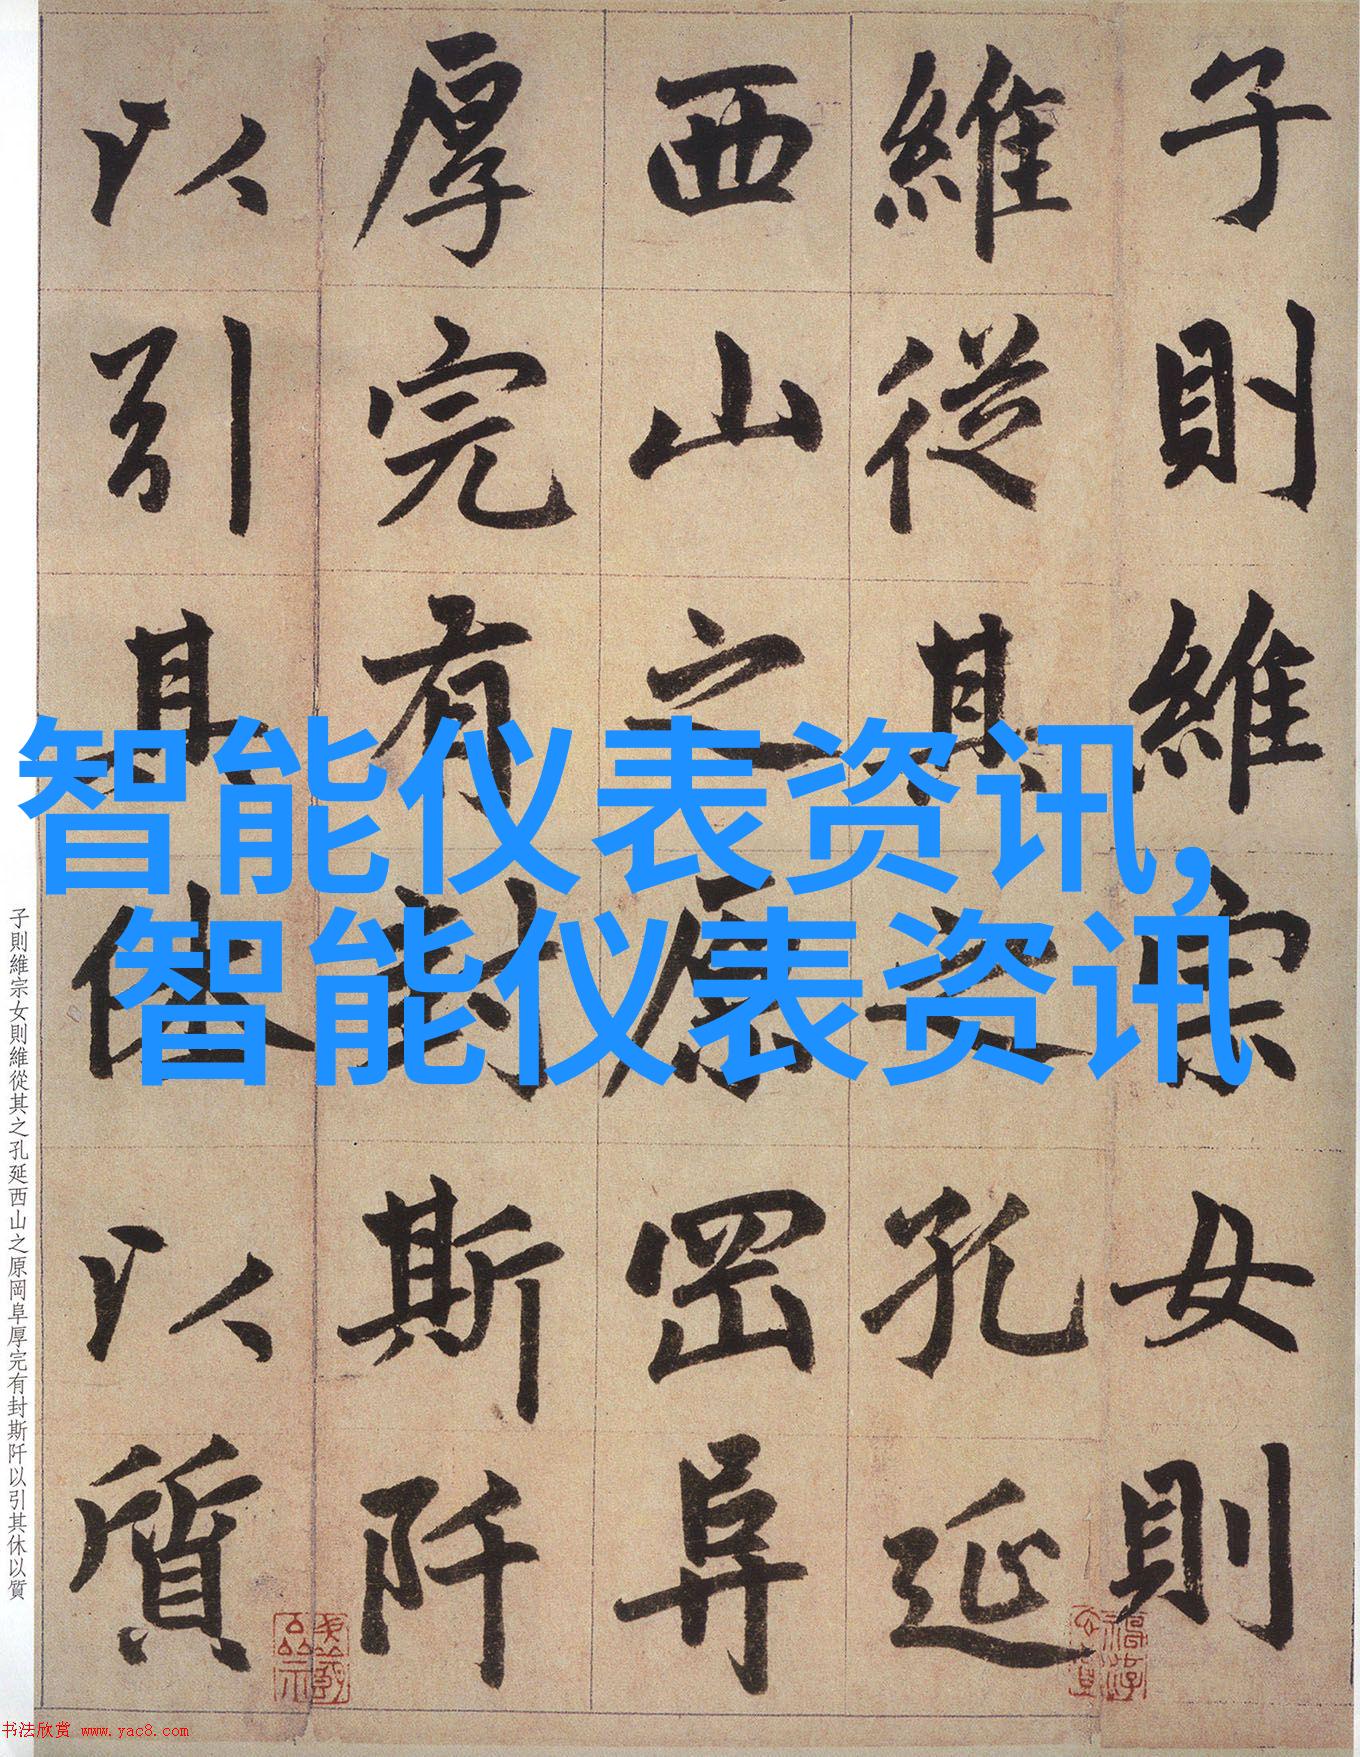 子則維宗女則
維從其之孔延
西山之原岡阜
厚完有封斯阡
以引其休以質
智能仪表资讯,
智能仪表资讯
子則維宗女則維從其之孔延西山之原岡阜厚完有封斯阡以引其休以質
书法欣赏 www.yac8.com